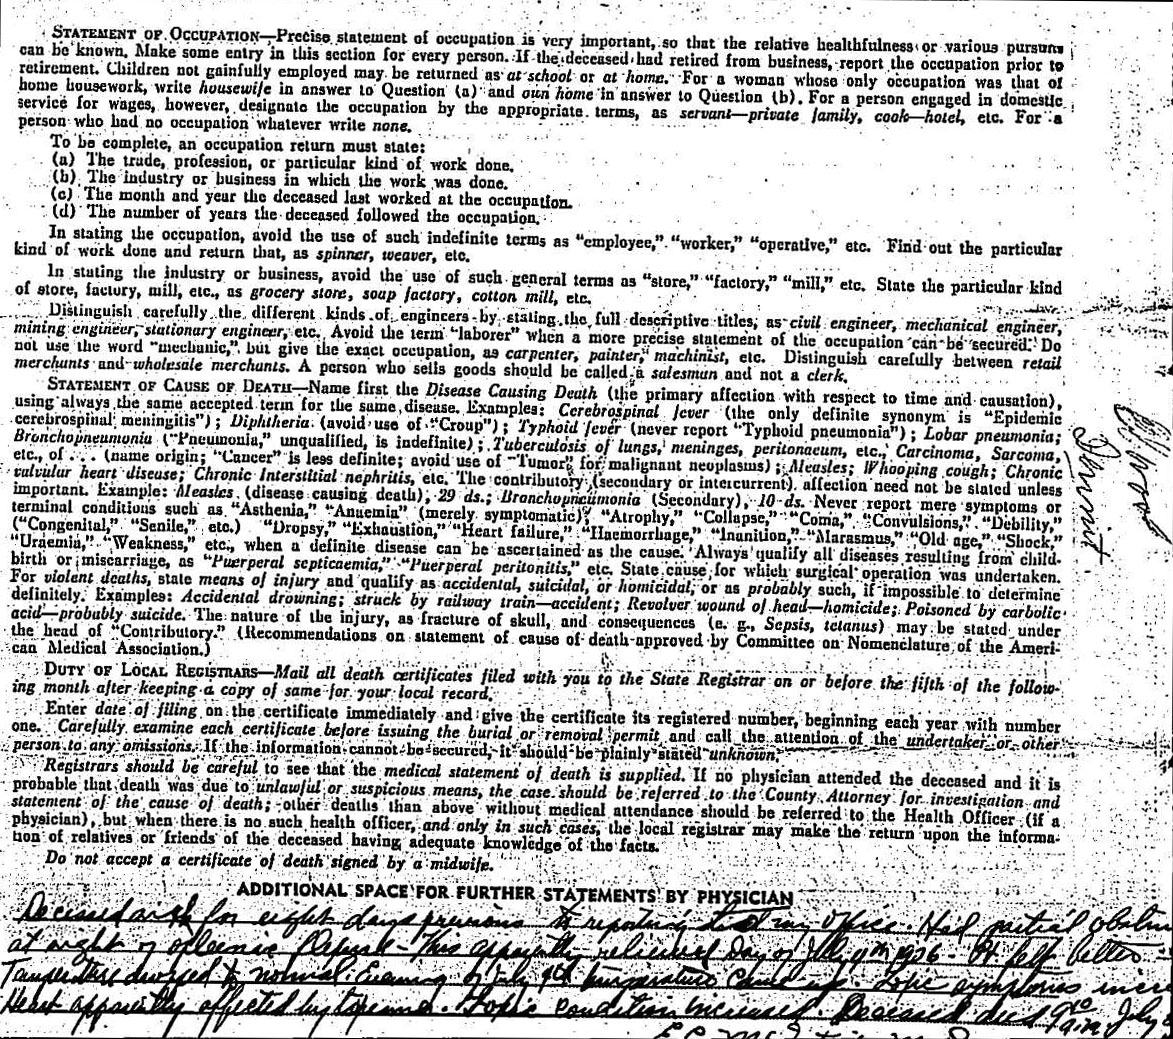 STATEMENT OF OCCUPATION—Precise statement of occupation is very important, so that the relative healthfulness or various pursuits
can be known. Make some entry in this section for every person. If the deceased had retired from business, report the occupation prior to
retirement. Children not gainfully employed may be returned as at school or at home. For a woman whose only occupation was that of
home housework, write housewife in answer to Question (a) and own home in answer to Question (b). For a person engaged in domestic
service for wages, however, designate the occupation by the appropriate terms, as servant—private family, cook—hotel, etc. For a
person who had no occupation whatever write none.
To be complete, an occupation return must state:
(a) The trade, profession, or particular kind of work done.
(b) The industry or business in which the work was done.
(c) The month and year the deceased last worked at the occupation.
(d) The number of years the deceased followed the occupation.
In stating the occupation, avoid the use of such indefinite terms as "employee," "worker," "operative," etc. Find out the particular
kind of work done and return that, as spinner, weaver, etc.
In stating the industry or business, avoid the use of such general terms as "store," "factory," "mill," etc. State the particular kind
of store, factory, mill, etc., as grocery store, soap factory, cotton mill, etc.
Distinguish carefully the different kinds of engineers by stating the full descriptive titles, as civil engineer, mechanical engineer,
mining engineer, stationary engineer, etc. Avoid the term "laborer" when a more precise statement of the occupation can be secured. Do
not use the word "mechanic," but give the exact occupation, as carpenter, painter, machinist, etc. Distinguish carefully between retail
merchants and wholesale merchants. A person who sells goods should be called a salesman and not a clerk.
STATEMENT OF CAUSE OF DEATH—Name first the Disease Causing Death (the primary affection with respect to time and causation),
using always the same accepted term for the same disease. Examples: Cerebrospinal fever (the only definite synonym is "Epidemic
cerebrospinal meningitis"); Diphtheria (avoid use of "Croup"); Typhoid fever (never report "Typhoid pneumonia"); Lobar pneumonia;
Bronchopneumonia ("Pneumonia," unqualified, is indefinite); Tuberculosis of lungs, meninges, peritonaeum, etc., Carcinoma, Sarcoma,
etc., of . . . . (name origin; "Cancer" is less definite; avoid use of "Tumor" for malignant neoplasms); Measles; Whooping cough; Chronic
valvular heart disease; Chronic Interstitial nephritis, etc. The contributory (secondary or intercurrent) affection need not be stated unless
important. Example: Measles (disease causing death), 29 ds.; Bronchopneumonia (Secondary), 10 ds. Never report mere symptoms or
terminal conditions such as "Asthenia," "Anaemia" (merely symptomatic), "Atrophy," "Collapse," "Coma," "Convulsions," "Debility,"
("Congenital," "Senile," etc.) "Dropsy," "Exhaustion," "Heart failure," "Haemorrhage," "Inanition," "Marasmus," "Old age," "Shock,"
"Uraemia," "Weakness," etc., when a definite disease can be ascertained as the cause. Always qualify all diseases resulting from child-
birth or miscarriage, as "Puerperal septicaemia," "Puerperal peritonitis," etc. State cause for which surgical operation was undertaken.
For violent deaths, state means of injury and qualify as accidental, suicidal, or homicidal, or as probably such, if impossible to determine
definitely. Examples: Accidental drowning; struck by railway train—accident; Revolver wound of head—homicide; Poisoned by carbolic
acid—probably suicide. The nature of the injury, as fracture of skull, and consequences (e. g., Sepsis, tetanus) may be stated under
the head of "Contributory." (Recommendations on statement of cause of death approved by Committee on Nomenclature of the Ameri-
can Medical Association.)
DUTY OF LOCAL REGISTRARS—Mail all death certificates filed with you to the State Registrar on or before the fifth of the follow-
ing month after keeping a copy of same for your local record.
Enter date of filing on the certificate immediately and give the certificate its registered number, beginning each year with number
one. Carefully examine each certificate before issuing the burial or removal permit and call the attention of the undertaker or other
person to any omissions. If the information cannot be secured, it should be plainly stated unknown.
Registrars should be careful to see that the medical statement of death is supplied. If no physician attended the deceased and it is
probable that death was due to unlawful or suspicious means, the case should be referred to the County Attorney for investigation and
statement of the cause of death; other deaths than above without medical attendance should be referred to the Health Officer (if a
physician), but when there is no such health officer, and only in such cases, the local registrar may make the return upon the informa-
tion of relatives or friends of the deceased having adequate knowledge of the facts.
Do not accept a certificate of death signed by a midwife.
ADDITIONAL SPACE FOR FURTHER STATEMENTS BY PHYSICIAN
Deceased for eight days previous to reporting my office. Had partial
at night of This apparently relieved Day of July 1936 - Pt felt better
Temperature dropped to normal. Evening of July 9th temperature came up. symptoms
Heart apparently affected by condition increased. Deceased died July
Permit